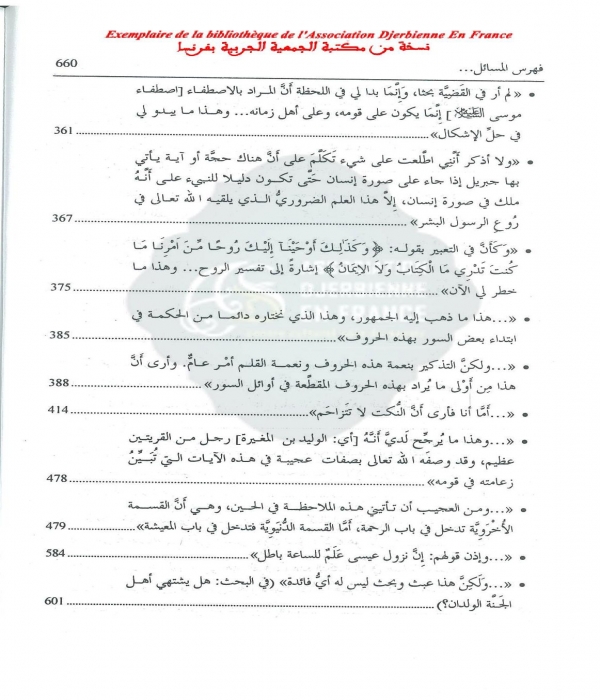 Exemplaire de la bibliothèque de l'Association Djerbienne En France
نسخة من مكتبة الجمعية الجربية بفرنسا
فهرس المسائل... 660
• «لم أر في القضيَّة بحثا، وإنَّما بدا لي في اللحظة أنَّ المراد بالاصطفاء [اصطفاء
موسى ] إنَّما يكون على قومه، وعلى أهل زمانه... وهذا ما يبدو لي
في حلِّ الإشكال» 361
• «ولا أذكر أنَّنِي اطَّلعت على شيء تَكَلَّمَ على أنَّ هناك حجَّة أو آية يأتي
بها جبريل إذا جاء على صورة إنسان حتَّى تكون دليلا للنبيء على أنَّهُ
ملك في صورة إنسان، إلاَّ هذا العلم الضروريُّ الـذي يلقيه الله تعالى في
رُوع الرسول البشر» 367
• «وكأنَّ في التعبير بقوله: ﴿وَكَذَلِكَ أَوْحَيْنَآ إِلَيْكَ رُوحًا مِّنَ اَمْرِنَا مَا
كُنتَ تَدْرِي مَا الْكِتَابُ وَلاَ الاِيمَانُ﴾ إشارةً إلى تفسير الروح... وهذا ما
خطر لي الآن» 375
• «...هذا ما ذهب إليه الجمهور، وهذا الذي نختاره دائما من الحكمة في
ابتداء بعض السور بهذه الحروف» 385
• «...ولكنَّ التذكير بنعمة هذه الحروف ونعمة القلم أمْر عامٌّ. وأرى أنَّ
هذا مِن أَوْلى ما يُراد بهذه الحروف المقطَّعة في أوائل السور» 388
• «...أمَّا أنا فأرى أنَّ النُّكت لا تَتَزَاحَم» 414
• «...وهذا ما يُرجِّح لديَّ أنَّهُ [أي: الوليد بن المغيرة] رجل من القريتين
عظيم، وقد وصفَه الله تعالى بصفات عجيبة في هذه الآيات التي تُبَيِّنُ
زعامته في قومه» 478
• «...ومن العجيب أن تأتيني هذه الملاحظة في الحين، وهي أنَّ القسمة
الأُخرَويَّة تدخل في باب الرحمة، أمَّا القسمة الدُّنيَوِيَّة فتدخل في باب المعيشة» 479
• «...وإذن قولهم: إنَّ نزول عيسى عَلَمٌ للساعة باطل» 584
• «...وَلَكِنَّ هذا عبث وبحث ليس له أيُّ فائدة» (في البحث: هل يشتهي أهل
الجَنَّة الولدان؟) 601